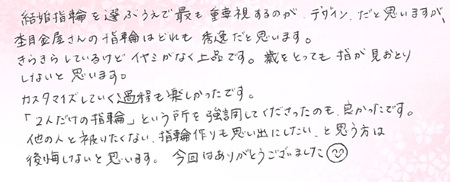 結婚指輪を選ぶうえで最も重要視するのが、デザイン、だと思いますが、
杢目金屋さんの指輪はどれも秀逸だと思います。
きらきらしているけどイヤミがなく上品です。歳をとっても指が見おとり
しないと思います。
カスタマイズしていく過程も楽しかったです。
「2人だけの指輪」という所を強調してくださったのも、良かったです。
他の人と被りたくない、指輪作りも思い出にしたい、と思う方は
後悔しないと思います。今回はありがとうございました